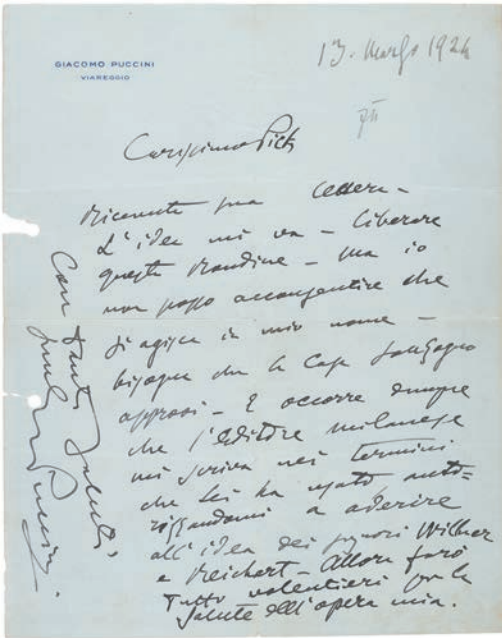 GIACOMO PUCCINI
VIAREGGIO
13. Marzo 1924
Carissimo Pick
Ricevuta sua lettera –
L'idea mi va – liberare
questa Rondine – ma io
non posso acconsentire che
si agisca in mio nome –
bisogna che la Casa Sonzogno
approvi – E occorre sempre
che l'editore milanese
mi scriva nei termini
che Lei ha usato auto=
rizzandomi a aderire
all'idea dei signori Willner
e Reichert – Allora farò
tutto volentieri per la
salute dell'opera mia.
Con tanti saluti,
Puccini.